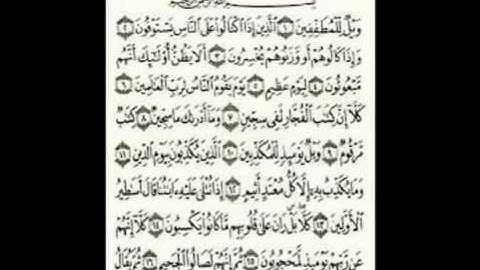 وَيْلٌ لِّلْمُطَفِّفِينَ ١ الَّذِينَ إِذَا اكْتَالُوا عَلَى النَّاسِ يَسْتَوْفُونَ ٢
وَإِذَا كَالُوهُمْ أَو وَّزَنُوهُمْ يُخْسِرُونَ ٣ أَلَا يَظُنُّ أُولَٰئِكَ أَنَّهُم
مَّبْعُوثُونَ ٤ لِيَوْمٍ عَظِيمٍ ٥ يَوْمَ يَقُومُ النَّاسُ لِرَبِّ الْعَالَمِينَ ٦
كَلَّا إِنَّ كِتَابَ الْفُجَّارِ لَفِي سِجِّينٍ ٧ وَمَا أَدْرَاكَ مَا سِجِّينٌ ٨ كِتَابٌ
مَّرْقُومٌ ٩ وَيْلٌ يَوْمَئِذٍ لِّلْمُكَذِّبِينَ ١٠ الَّذِينَ يُكَذِّبُونَ بِيَوْمِ الدِّينِ ١١
وَمَا يُكَذِّبُ بِهِ إِلَّا كُلُّ مُعْتَدٍ أَثِيمٍ ١٢ إِذَا تُتْلَىٰ عَلَيْهِ آيَاتُنَا قَالَ أَسَاطِيرُ
الْأَوَّلِينَ ١٣ كَلَّا بَلْ رَانَ عَلَىٰ قُلُوبِهِم مَّا كَانُوا يَكْسِبُونَ ١٤ كَلَّا إِنَّهُمْ
عَن رَّبِّهِمْ يَوْمَئِذٍ لَّمَحْجُوبُونَ ١٥ ثُمَّ إِنَّهُمْ لَصَالُو الْجَحِيمِ ١٦ ثُمَّ يُقَالُ